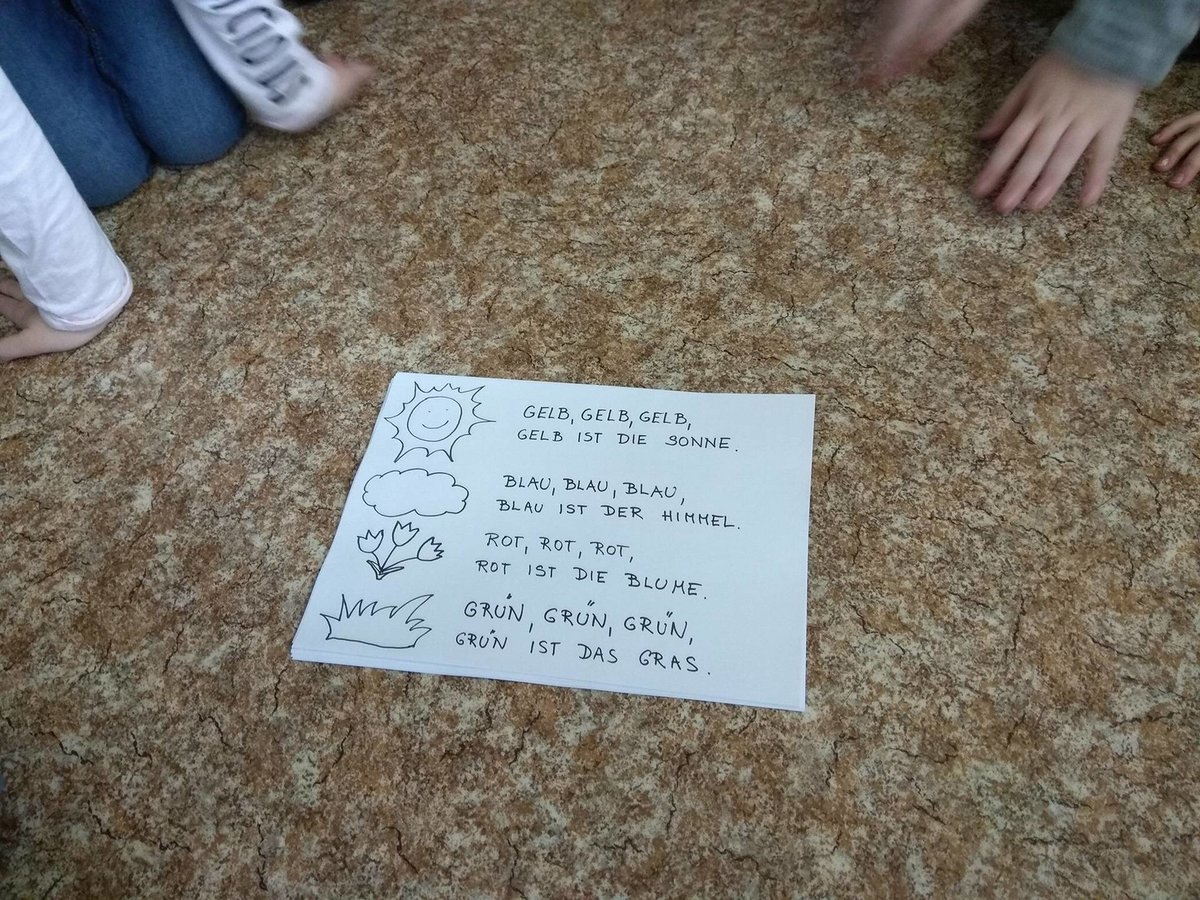 GELB, GELB, GELB,
GELB IST DIE SONNE.
BLAU, BLAU, BLAU,
BLAU IST DER HIMMEL.
ROT, ROT, ROT,
ROT IST DIE BLUME.
GRÜN, GRÜN, GRÜN,
GRÜN IST DAS GRAS.